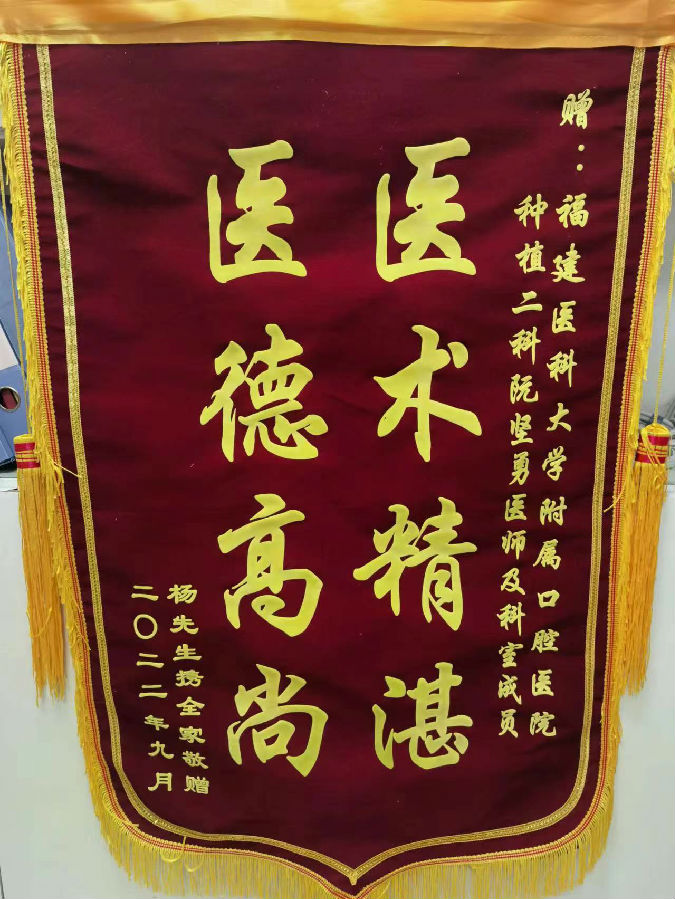 赠：福建医科大学附属口腔医院
种植二科阮坚勇医师及科室成员
医术精湛
医德高尚
杨先生携全家敬赠
二〇二二年九月